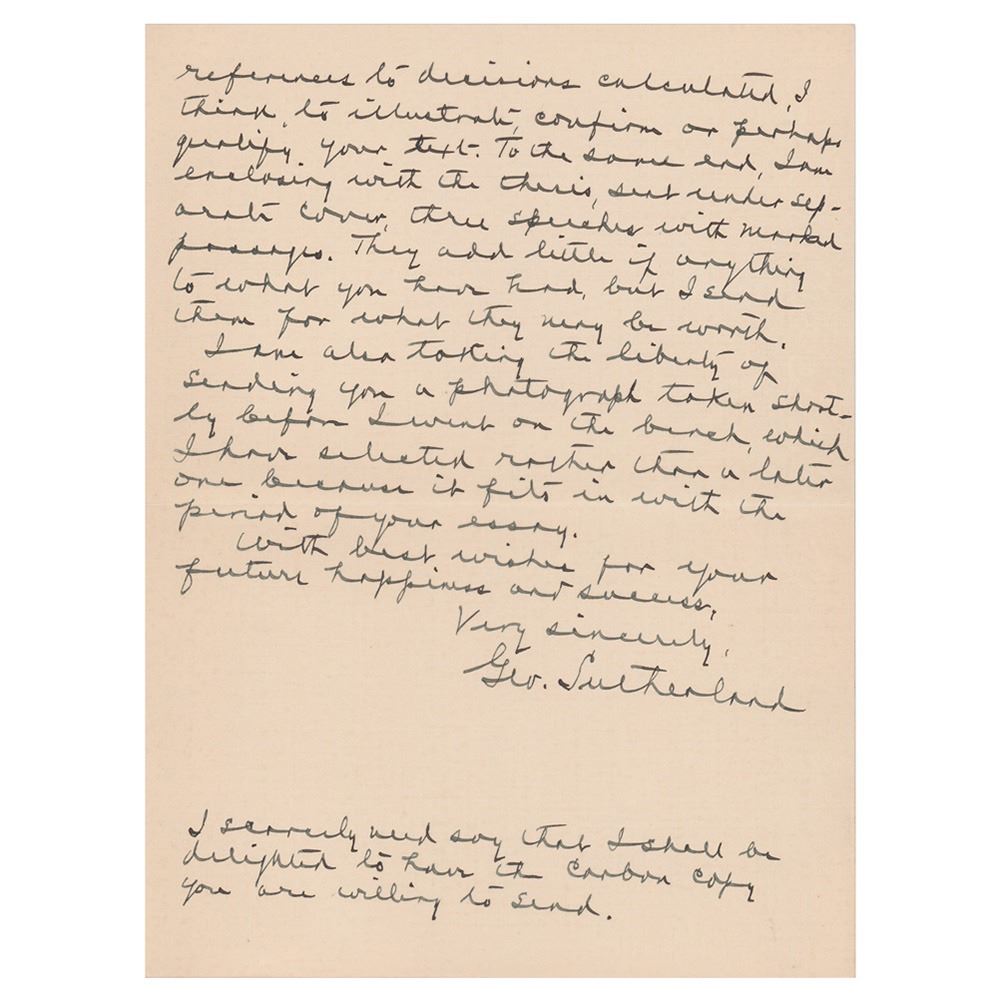 references to decisions calculated, I
think, to illustrate, confirm or perhaps
qualify your text. To the same end, I am
enclosing with the thesis, sent under sep-
arate cover, three speeches with marked
passages. They add little if anything
to what you have had, but I send
them for what they may be worth.
I am also taking the liberty of
sending you a photograph taken short-
ly before I went on the bench, which
I have selected rather than a later
one because it fits in with the
period of your essay.
With best wishes for your
future happiness and success,
Very sincerely,
Geo. Sutherland
I scarcely need say that I shall be
delighted to have the carbon copy
you are willing to send.